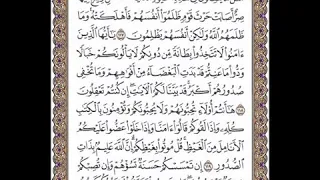 صِرٌّ أَصَابَتْ حَرْثَ قَوْمٍ ظَلَمُوٓا۟ أَنفُسَهُمْ فَأَهْلَكَتْهُ وَمَا
ظَلَمَهُمُ ٱللَّهُ وَلَٰكِنْ أَنفُسَهُمْ يَظْلِمُونَ ١١٧ يَٰٓأَيُّهَا ٱلَّذِينَ
ءَامَنُوا۟ لَا تَتَّخِذُوا۟ بِطَانَةً مِّن دُونِكُمْ لَا يَأْلُونَكُمْ خَبَالًا
وَدُّوا۟ مَا عَنِتُّمْ قَدْ بَدَتِ ٱلْبَغْضَآءُ مِنْ أَفْوَٰهِهِمْ وَمَا تُخْفِى
صُدُورُهُمْ أَكْبَرُ قَدْ بَيَّنَّا لَكُمُ ٱلْءَايَٰتِ إِن كُنتُمْ تَعْقِلُونَ
١١٨ هَٰٓأَنتُمْ أُو۟لَآءِ تُحِبُّونَهُمْ وَلَا يُحِبُّونَكُمْ وَتُؤْمِنُونَ بِٱلْكِتَٰبِ
كُلِّهِۦ وَإِذَا لَقُوكُمْ قَالُوٓا۟ ءَامَنَّا وَإِذَا خَلَوْا۟ عَضُّوا۟ عَلَيْكُمُ
ٱلْأَنَامِلَ مِنَ ٱلْغَيْظِ قُلْ مُوتُوا۟ بِغَيْظِكُمْ إِنَّ ٱللَّهَ عَلِيمٌۢ بِذَاتِ
ٱلصُّدُورِ ١١٩ إِن تَمْسَسْكُمْ حَسَنَةٌ تَسُؤْهُمْ وَإِن تُصِبْكُمْ